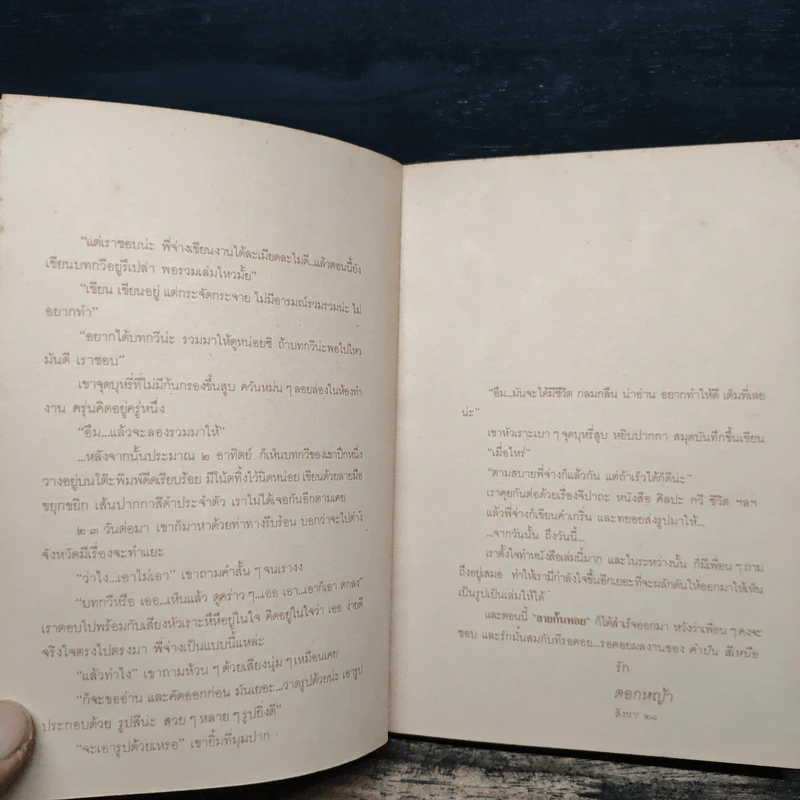 "แต่เราชอบน่ะ พี่จ่างเขียนงานได้ละเมียดละไมดี...แล้วตอนนี้ยัง
เขียนบทกวีอยู่รึเปล่า พอรวมเล่มไหวมั้ย"
"เขียน เขียนอยู่ แต่กระจัดกระจาย ไม่มีอารมณ์รวมรวมน่ะ ไม่
อยากทำ"
"อยากได้บทกวีน่ะ รวมมาให้ดูหน่อยซิ ถ้าบทกวีน่ะพอไปไหว
มันดี เราชอบ"
เขาจุดบุหรี่ที่ไม่มีก้นกรองขึ้นสูบ ควันหม่น ๆ ลอยล่องในห้องทำ
งาน ครุ่นคิดอยู่ครู่หนึ่ง
"อืม...แล้วจะลองรวมมาให้"
...หลังจากนั้นประมาณ ๒ อาทิตย์ ก็เห็นบทกวีของเขาปึกหนึ่ง
วางอยู่บนโต๊ะพิมพ์ดีดเรียบร้อย มีโน้ตทิ้งไว้นิดหน่อย เขียนด้วยลายมือ
ขยุกขยิก เส้นปากกาสีดำประจำตัว เราไม่ได้เจอกันอีกตามเคย
๒-๓ วันต่อมา เขาก็มาหาด้วยท่าทางรีบร้อน บอกว่าจะไปต่าง
จังหวัดมีเรื่องจะทำแยะ
"ว่าไง...เอาไม่เอา" เขาถามคำสั้น ๆ จนเรางง
"บทกวีหรือ เออ...เห็นแล้ว ดูคร่าว ๆ...เออ เอา...เอาก็เอา ตกลง"
เราตอบไปพร้อมกับเสียงหัวเราะหึหึอยู่ในใจ คิดอยู่ในใจว่า เออ ง่ายดี
จริงใจตรงไปตรงมา พี่จ่างเป็นแบบนี้แหล่ะ
"แล้วทำไง" เขาถามห้วน ๆ ด้วยเสียงนุ่ม ๆ เหมือนเคย
"ก็จะขออ่าน และคัดออกก่อน มันเยอะ...วาดรูปด้วยน่ะ เอารูป
ประกอบด้วย รูปสีน่ะ สวย ๆ หลาย ๆ รูปยิ่งดี"
"จะเอารูปด้วยเหรอ" เขายิ้มที่มุมปาก
"อืม...มันจะได้มีชีวิต กลมกลืน น่าอ่าน อยากทำให้ดี เต็มที่เลย
น่ะ"
เขาหัวเราะเบา ๆ จุดบุหรี่สูบ หยิบปากกา สมุดบันทึกขึ้นเขียน
"เมื่อไหร่"
"ตามสบายพี่จ่างก็แล้วกัน แต่ถ้าเร็วได้ก็ดีน่ะ"
เราคุยกันต่อด้วยเรื่องจิปาถะ หนังสือ ศิลปะ กวี ชีวิต ฯลฯ
แล้วพี่จ่างก็เขียนคำเกริ่น และทยอยส่งรูปมาให้...
...จากวันนั้น ถึงวันนี้...
เราตั้งใจทำหนังสือเล่มนี้มาก และในระหว่างนั้น ก็มีเพื่อน ๆ ถาม
ถึงอยู่เสมอ ทำให้เรามีกำลังใจขึ้นอีกเยอะที่จะผลักดันให้ออกมาให้เห็น
เป็นรูปเป็นเล่มให้ได้
และตอนนี้ "ลายก้นหอย" ก็ได้สำเร็จออกมา หวังว่าเพื่อน ๆ คงจะ
ชอบ และรักมันสมกับที่รอคอย...รอคอยผลงานของ คำยัน สีเหนือ
รัก
ดอกหญ้า
สิงหา' ๒๘